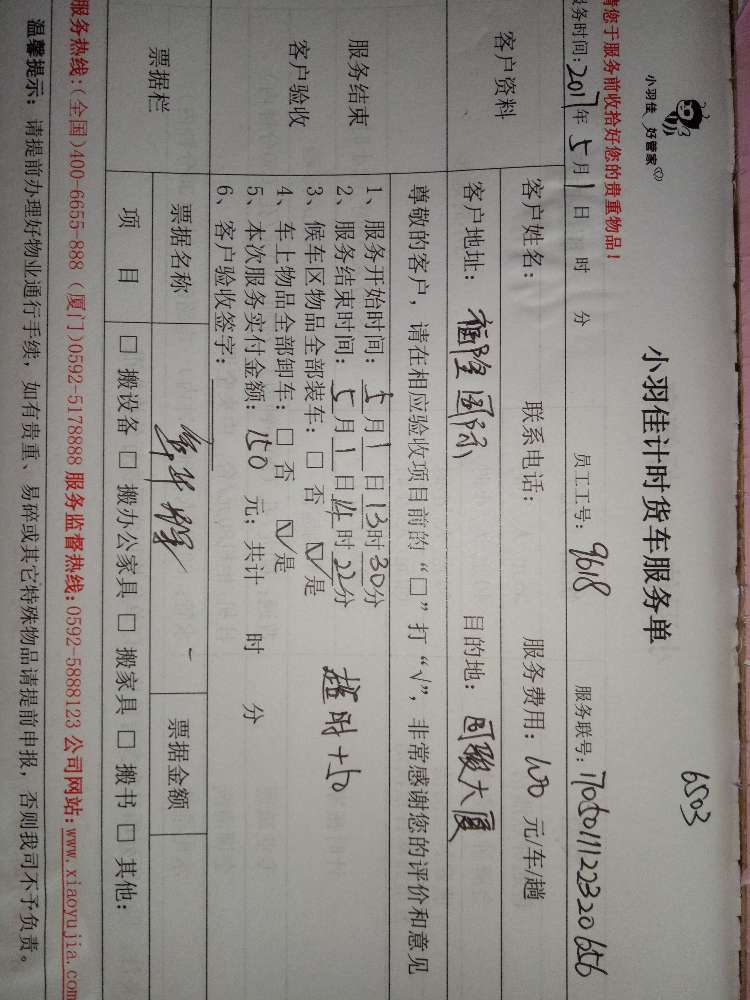 6503
小羽佳 好管家
小羽佳计时货车服务单
请您于服务前收拾好您的贵重物品!
服务时间: 2017年5月1日 时 分 员工工号: 9618 服务联号: 1705011122320656
客户资料
客户姓名: 联系电话: 服务费用: 100 元/车/趟
客户地址: 福隆国际 目的地: 国骏大厦
尊敬的客户, 请在相应验收项目前的“□”打“√”, 非常感谢您的评价和意见
服务结束
客户验收
1、服务开始时间: 5月1日13时30分
2、服务结束时间: 5月1日14时22分 超时+50
3、候车区物品全部装车: □ 否 ☑ 是
4、车上物品全部卸车: □ 否 ☑ 是
5、本次服务实付金额: 150 元; 共计 时 分
6、客户验收签字:
票据栏
票据名称 票据金额
项 目 □ 搬设备 □ 搬办公家具 □ 搬家具 □ 搬书 □ 其他:
服务热线:(全国)400-6655-888 (厦门)0592-5178888 服务监督热线:0592-5888123 公司网站:www.xiaoyujia.com
温馨提示: 请提前办理好物业通行手续, 如有贵重、易碎或其它特殊物品请提前申报, 否则我司不予负责。